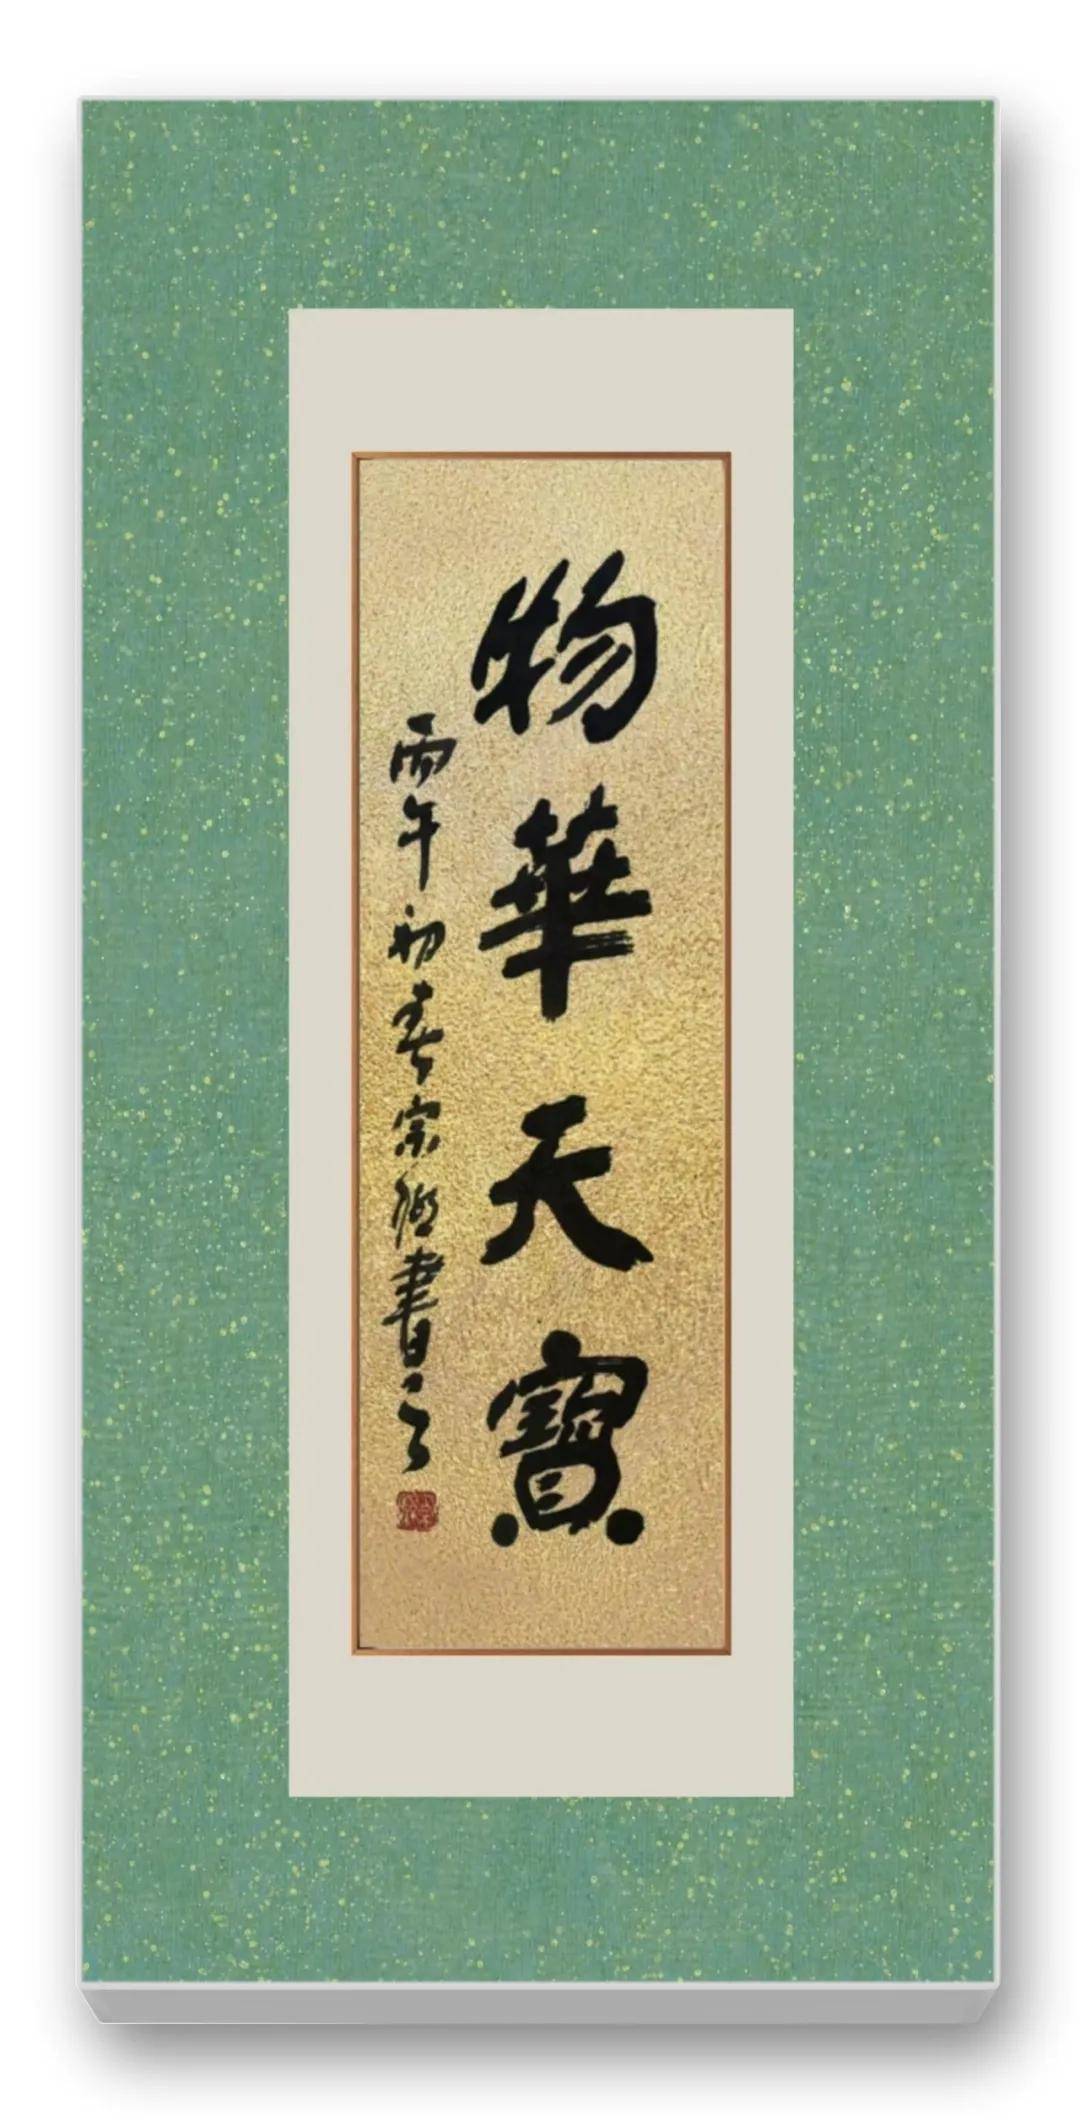 物華天寶
丙午初春宗㣧書之